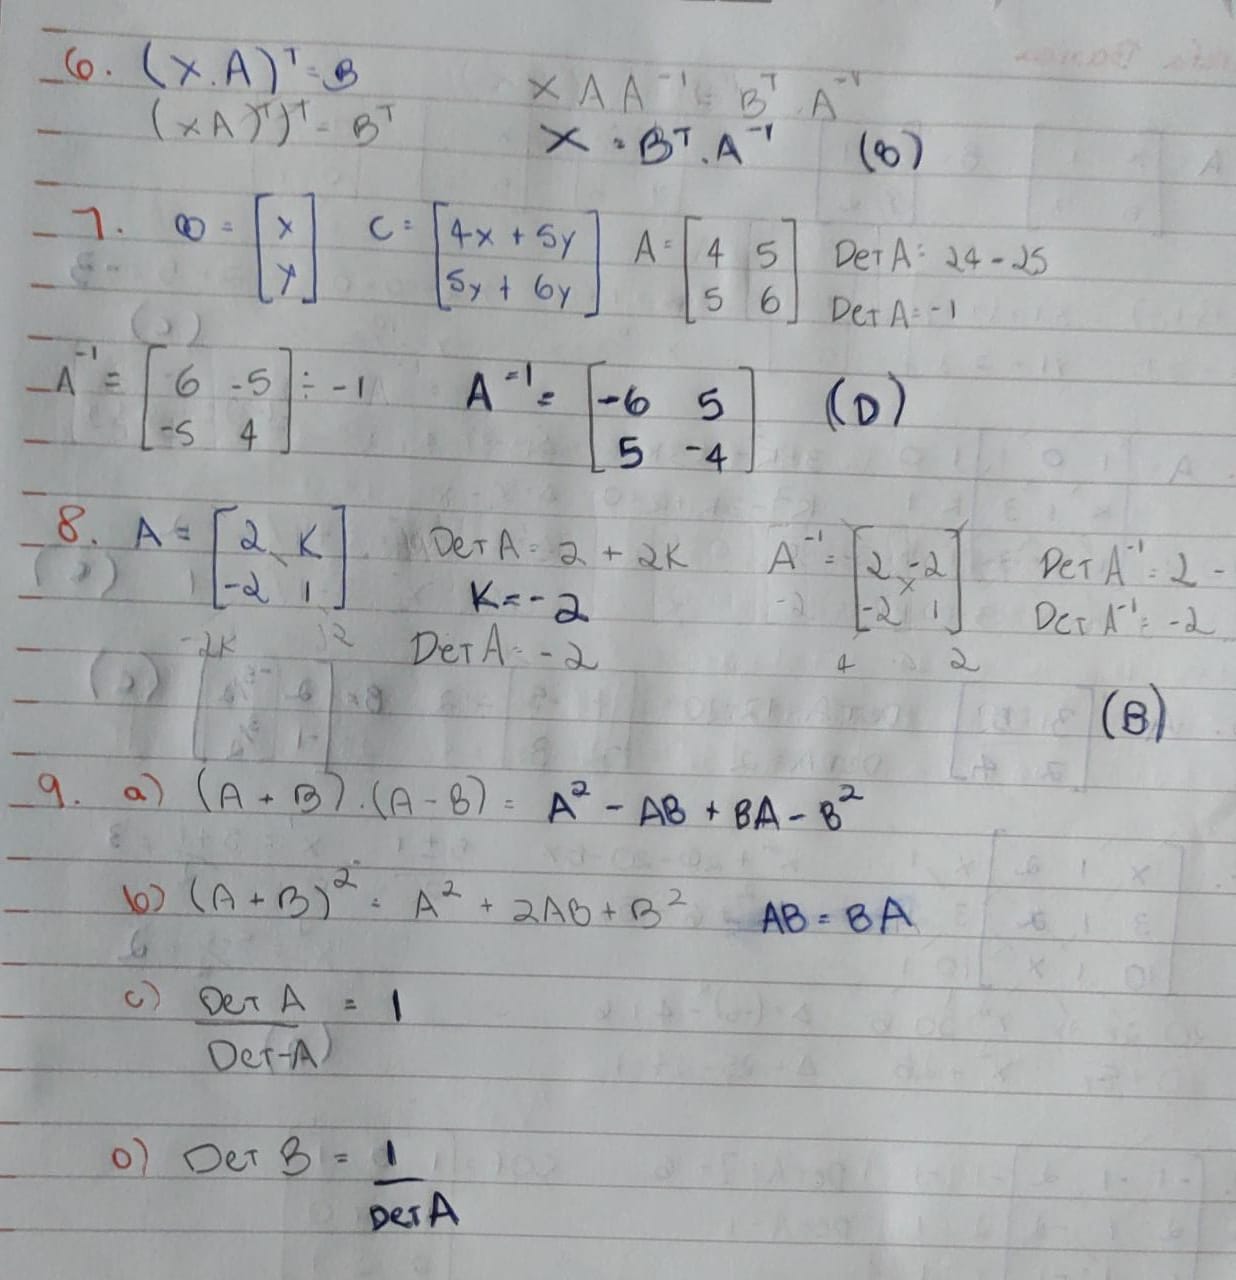 6. (X.A)ᵀ = B    X A A⁻¹ = Bᵀ . A⁻¹
(XA)ᵀ)ᵀ = Bᵀ    X = Bᵀ.A⁻¹    (B)
7. B = [x y]    C = [4x + 5y 5y + 6y]    A = [4 5 5 6]    Det A = 24 - 25
Det A = -1
A⁻¹ = [6 -5 -5 4] ÷ -1    A⁻¹ = [-6 5 5 -4]    (D)
8. A = [2 K -2 1]    Det A = 2 + 2K    A⁻¹ = [2 -2 -2 1]    Det A⁻¹ = 2 -
K = -2    Det A⁻¹ = -2
-2K    Det A = -2    4    2
(B)
9. a) (A + B).(A - B) = A² - AB + BA - B²
b) (A + B)² = A² + 2AB + B²    AB = BA
c) Det A / Det(-A) = 1
D) Det B = 1 / Det A